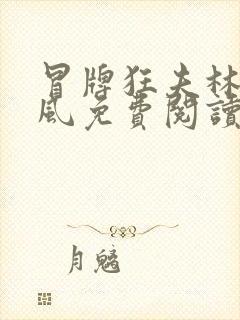 冒牌狂夫林
風免費閱讀
月魑